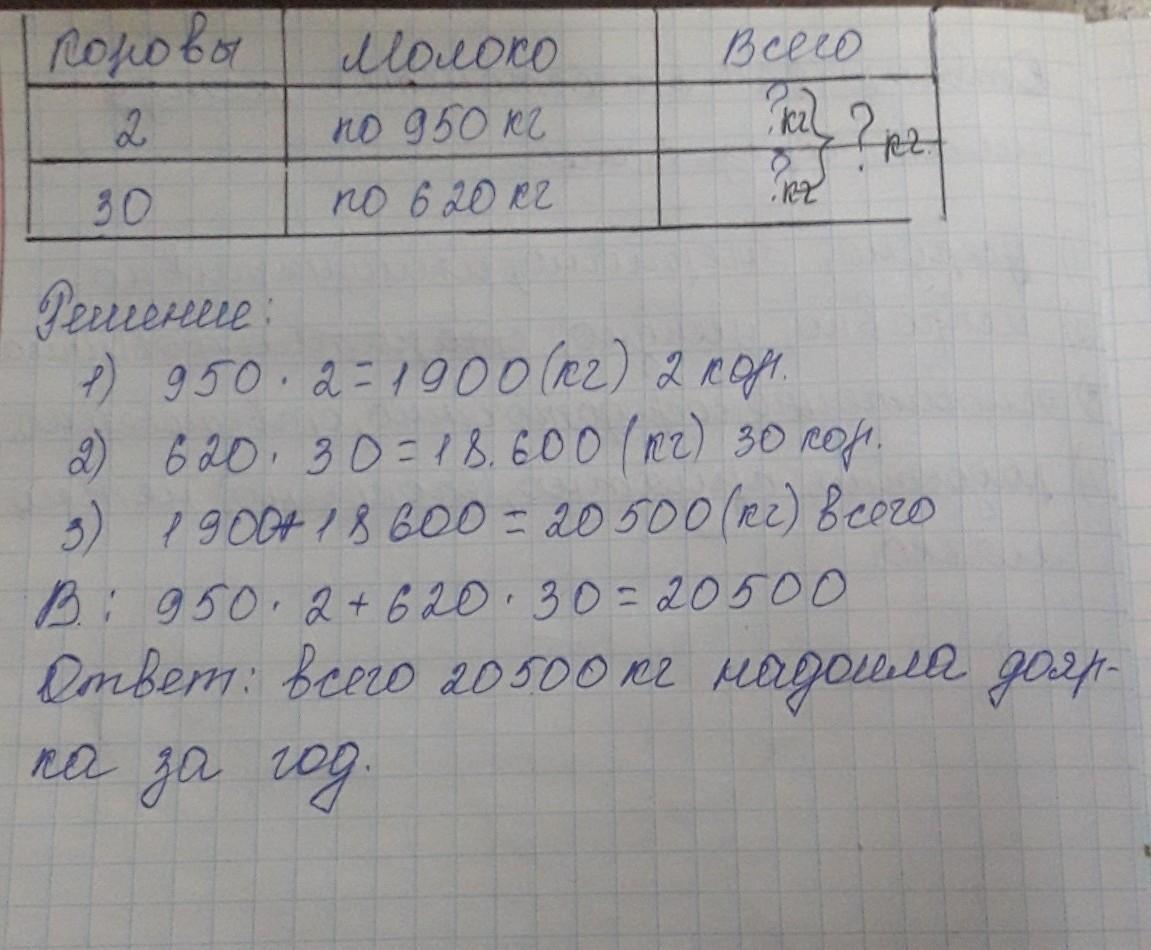 Коровы Молоко Всего
2 по 950 кг ? кг
? кг.
30 по 620 кг ? кг
Решение:
1) 950 · 2 = 1900 (кг) 2 кор.
2) 620 · 30 = 18.600 (кг) 30 кор.
3) 1900 + 18 600 = 20 500 (кг) всего
В : 950 · 2 + 620 · 30 = 20500
Ответ: всего 20500 кг надоила дояр-
ка за год.